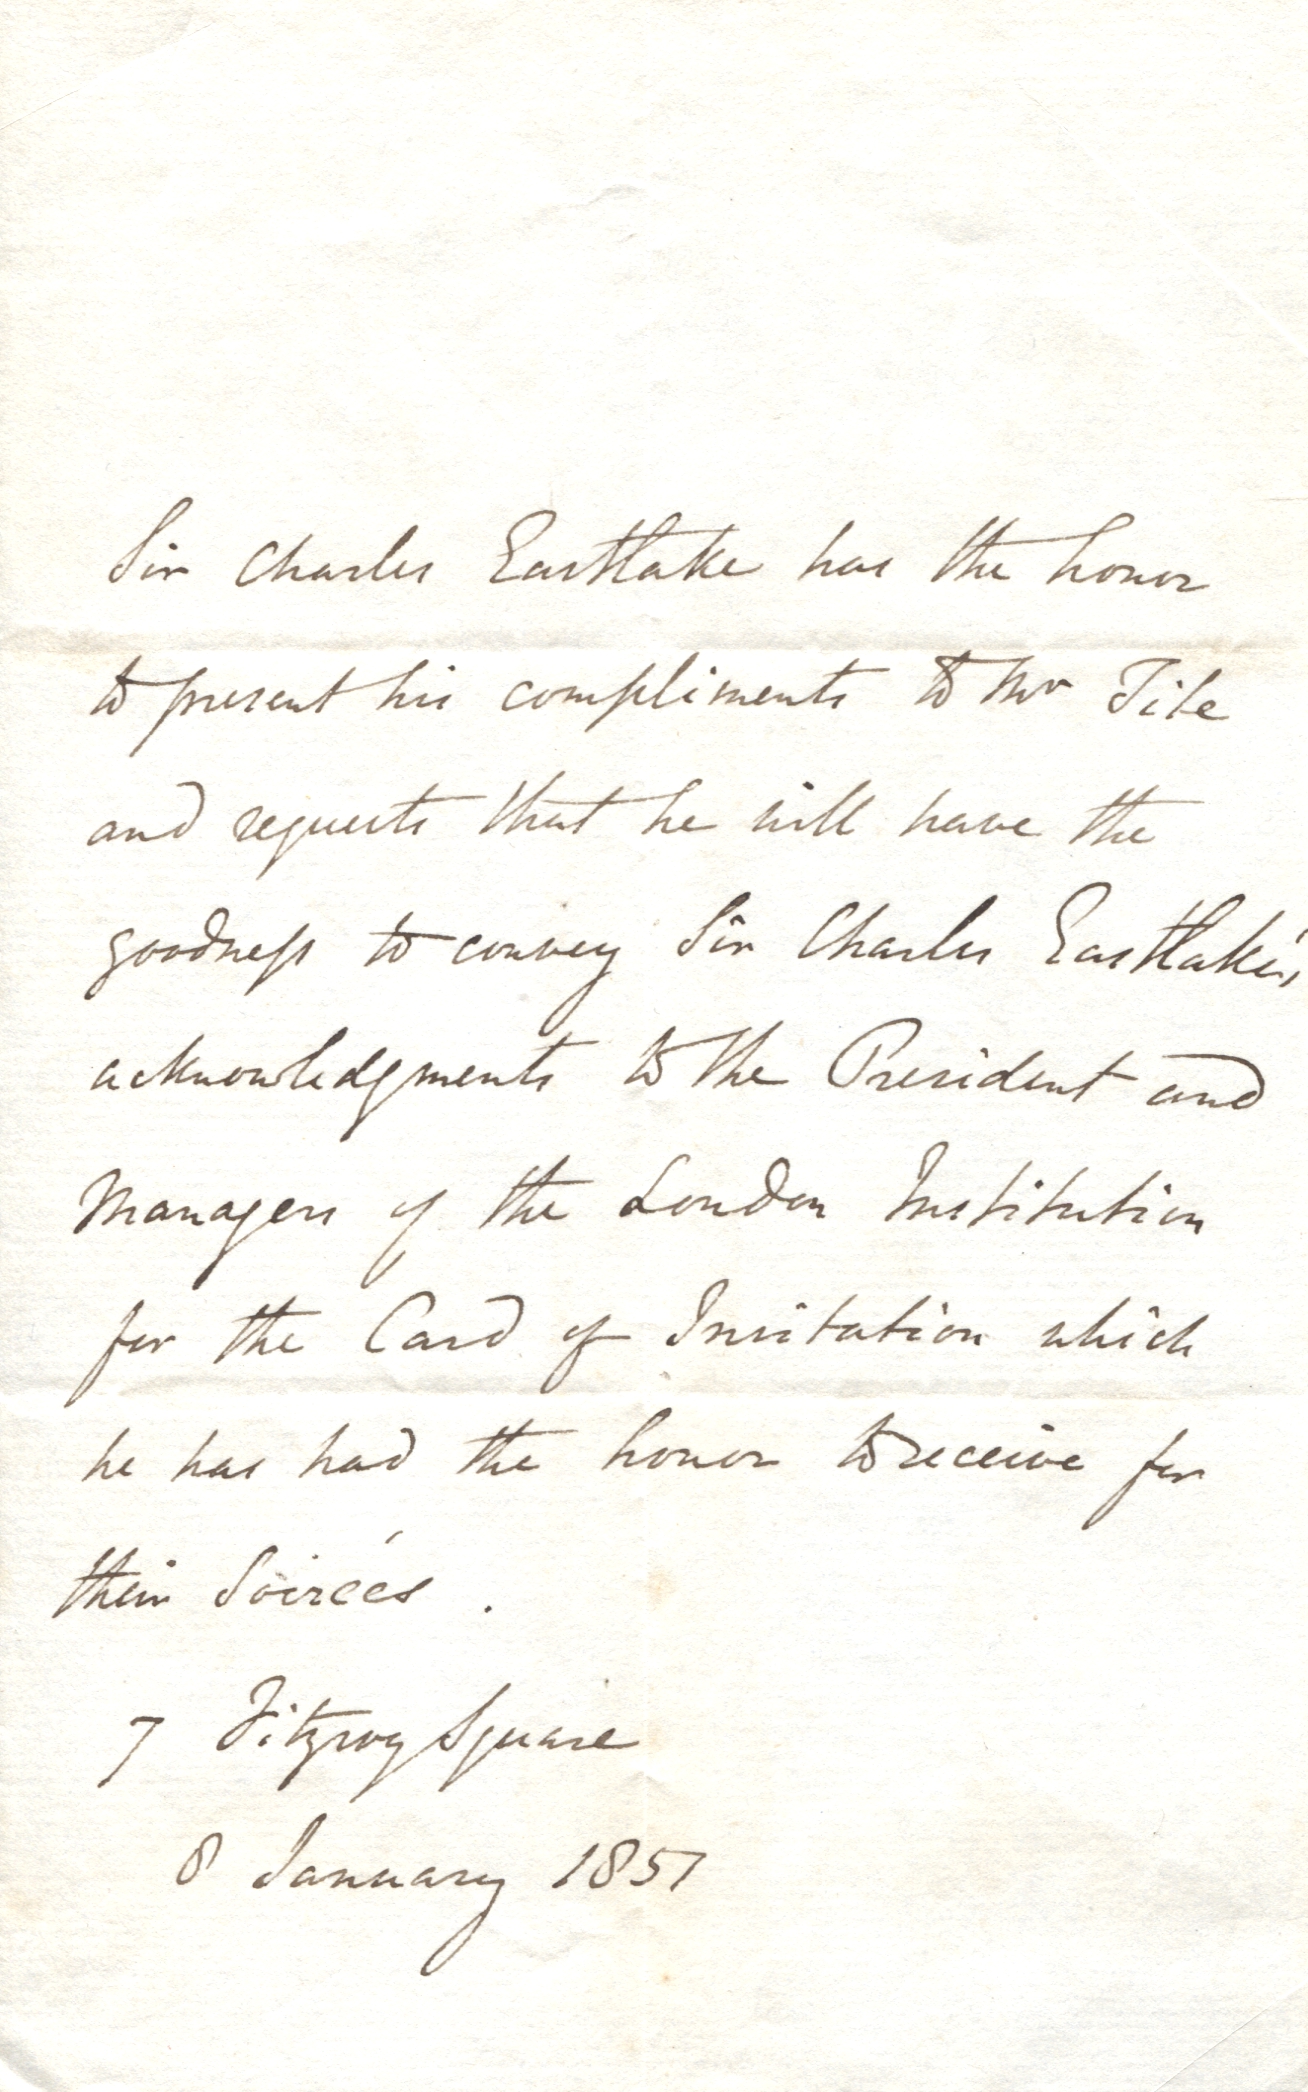 Sir Charles Eastlake has the honor
to present his compliments to Mr Tite
and requests that he will have the
goodness to convey Sir Charles Eastlake's
acknowledgments to the President and
Managers of the London Institution
for the Card of Invitation which
he has had the honor to receive for
their Soirées.
7 Fitzroy Square
8 January 1851